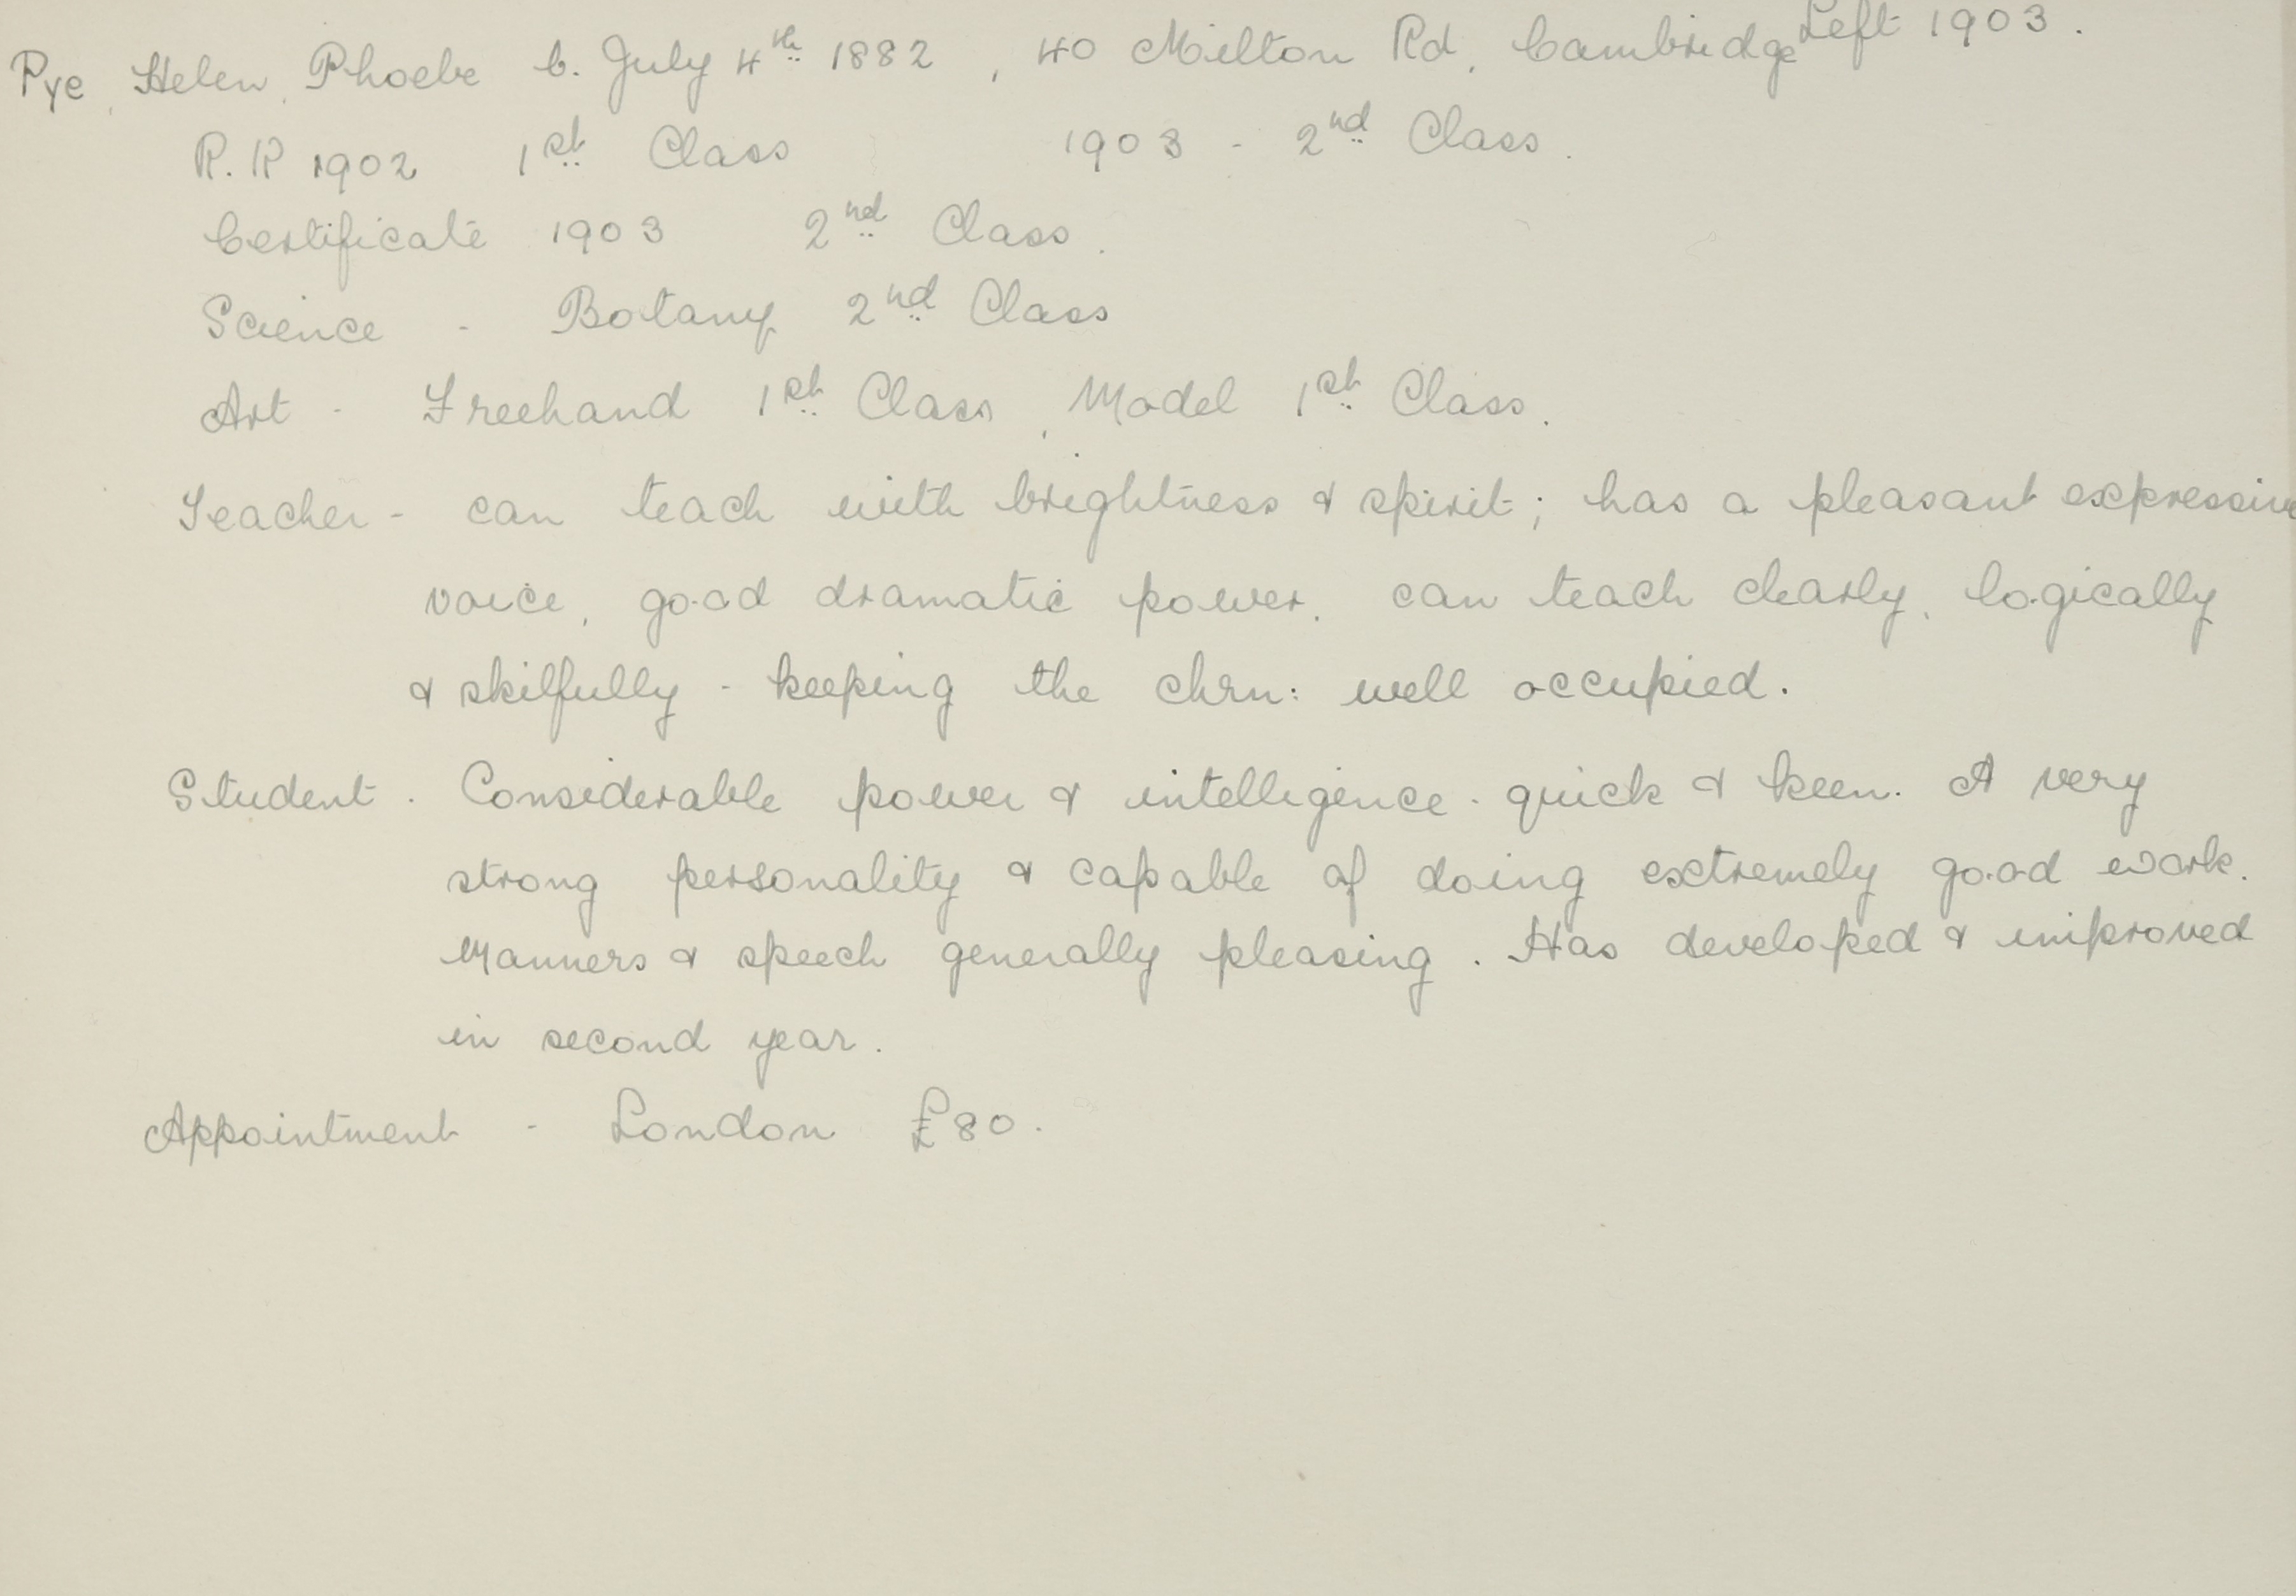 Pye, Helen, Phoebe b. July 4th 1882, 40 Milton Rd, Cambridge Left 1903.
R.K 1902 1st Class 1903 - 2nd Class.
Certificate 1903 2nd Class.
Science - Botany 2nd Class
Art - Freehand 1st Class, Model 1st Class.
Teacher - can teach with brightness & spirit; has a pleasant expressive
voice, good dramatic power. can teach clearly, logically
& skilfully - keeping the chrn: well occupied.
Student. Considerable power & intelligence. quick & keen. A very
strong personality & capable of doing extremely good work.
Manners & speech generally pleasing. Has developed & improved
in second year.
Appointment - London £80.